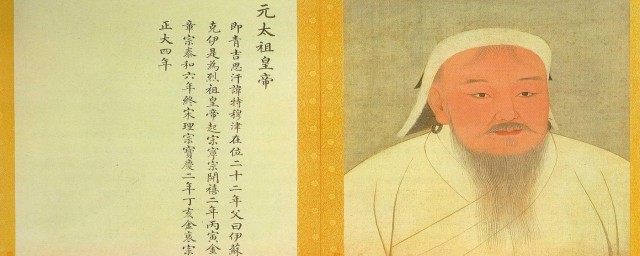 元太祖皇帝
即青吉思汗諱特穆津在位二十二年父曰伊蘇
克伊是為烈祖皇帝起宗寧宗開禧二年丙寅金
章宗泰和六年終宋理宗寶慶二年丁亥金哀宗
正大四年